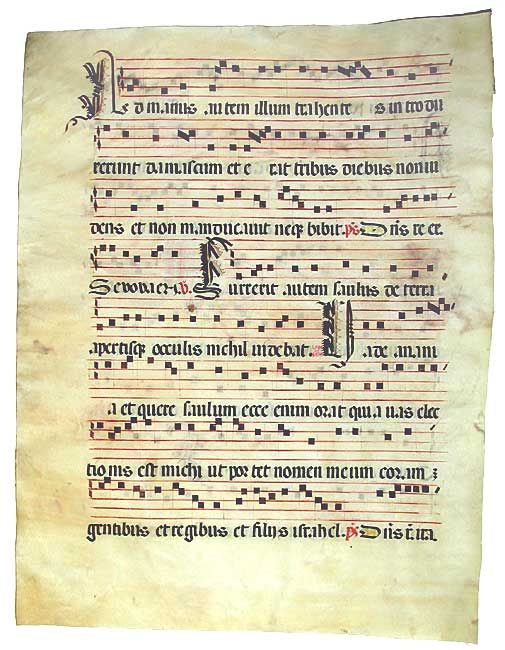 Ad manus autem illum trahentes introdu
xerunt damascum et erat tribus diebus non vi
dens et non manducavit neqz bibit. ps Dns re ce.
Se vovae v. Surrexit autem saulus de terra
apertisqz occulis nichil videbat. Vade anani
a et quere saulum ecce enim orat quia vas elec
tionis est michi ut portet nomen meum coram
gentibus et regibus et filiis israhel. ps Dns